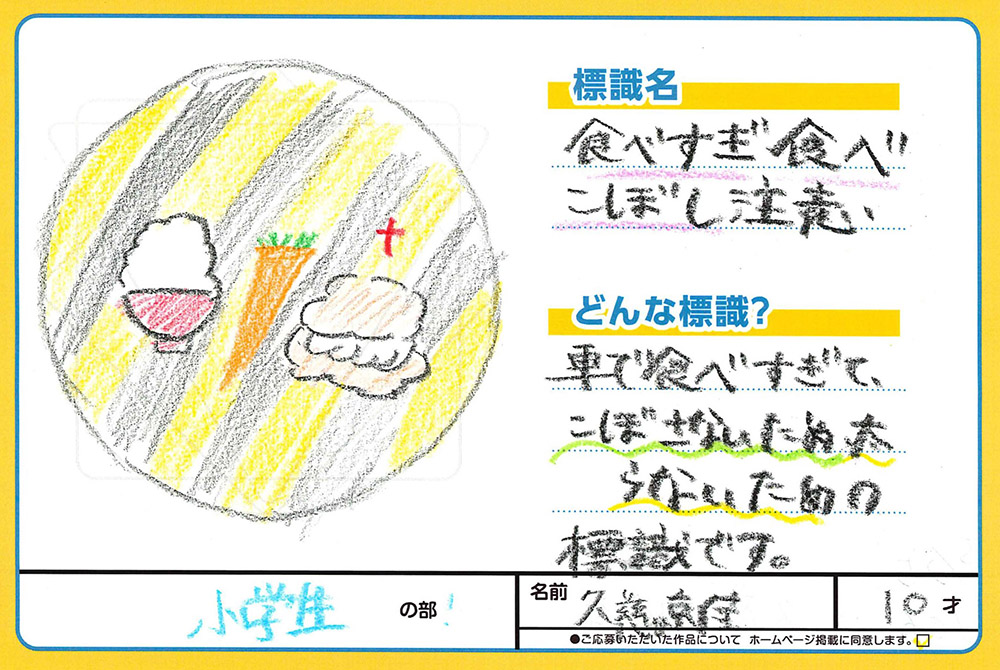 標識名
食べすぎ食べ
こぼし注意
どんな標識?
車で食べすぎて、
こぼさないため太
らないための
標識です。
小学生 の部!
名前 久
10才
●ご応募いただいた作品について ホームページ掲載に同意します。